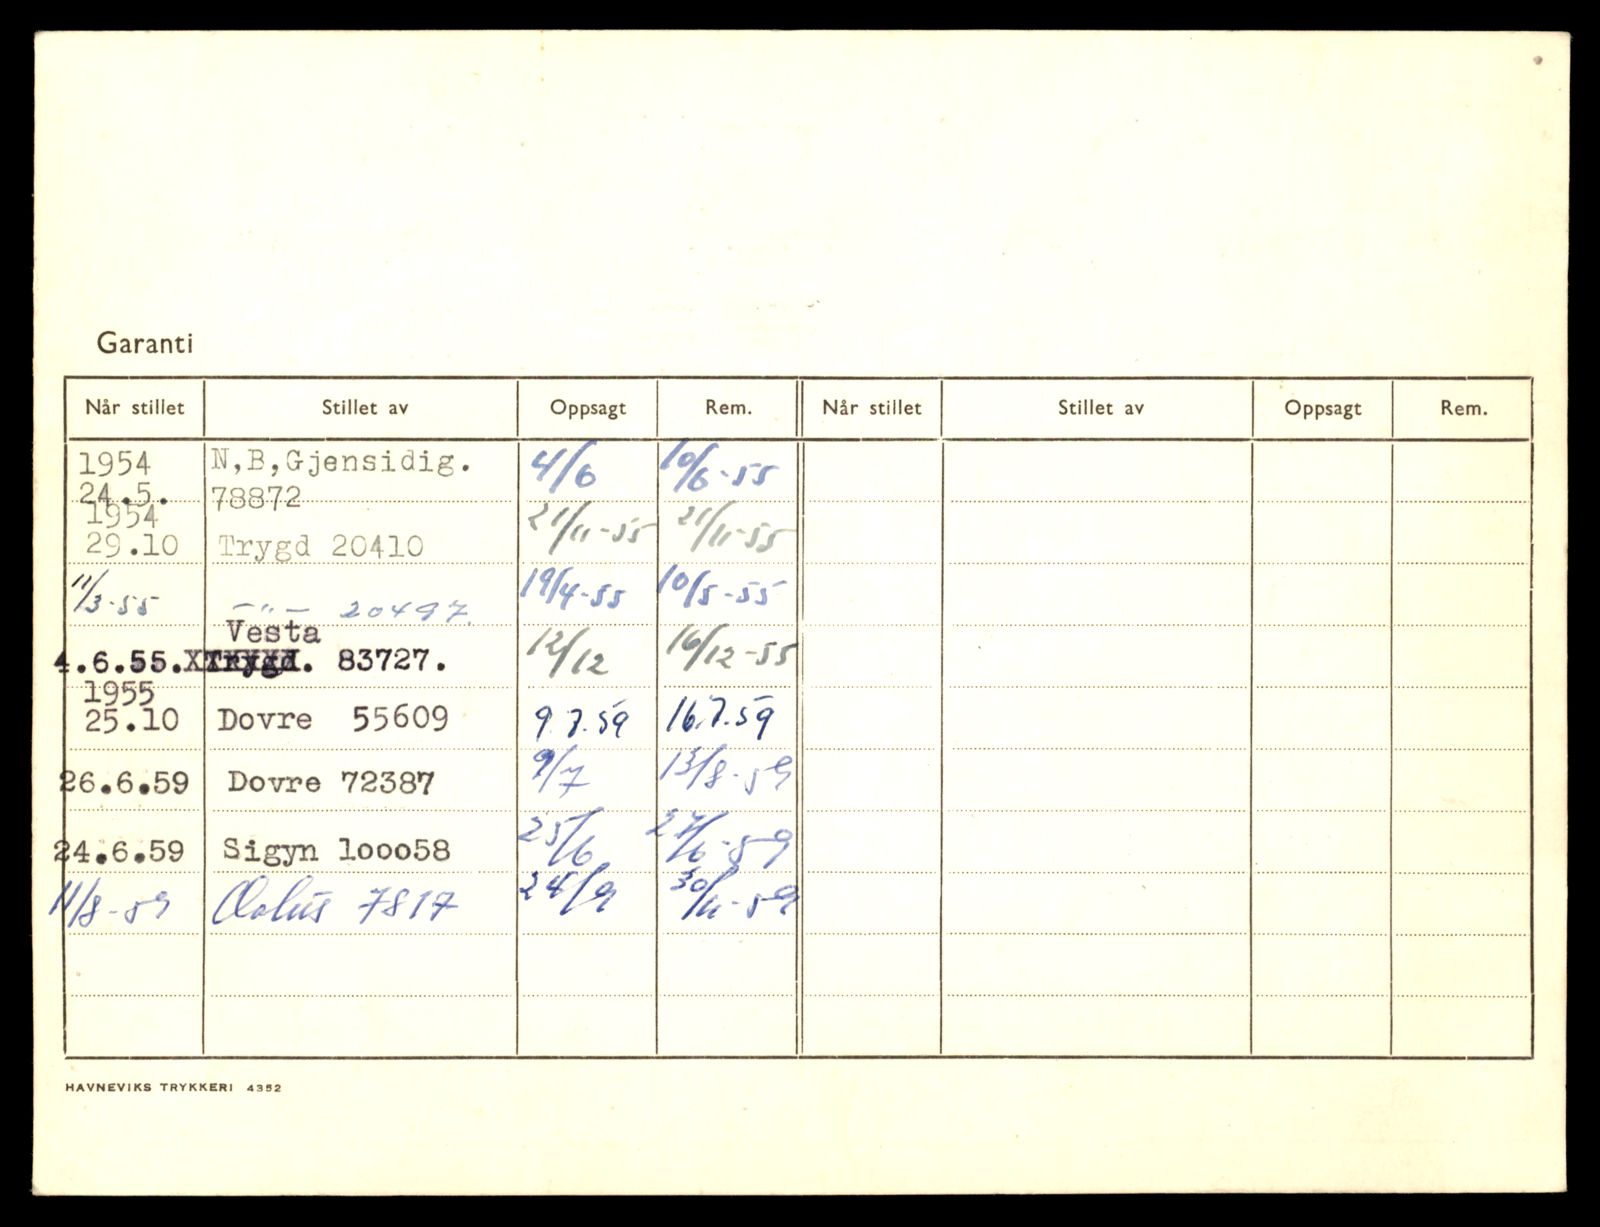 Garanti
Når stillet Stillet av Oppsagt Rem. Når stillet Stillet av Oppsagt Rem.
1954 N,B,Gjensidig. 4/6 10/6-55
24.5. 78872
1954 21/11-55 21/11-55
29.10 Trygd 20410
11/3-55 —"— 20497. 19/4-55 10/5-55
Vesta
4.6.55. Trygd. 83727. 12/12 16/12-55
1955
25.10 Dovre 55609 9.7.59 16.7.59
26.6.59 Dovre 72387 9/7 13/8-59
24.6.59 Sigyn 1ooo58 25/6 27/6-59
11/8-59 7817 24/9 30/11-59
HAVNEVIKS TRYKKERI 4352